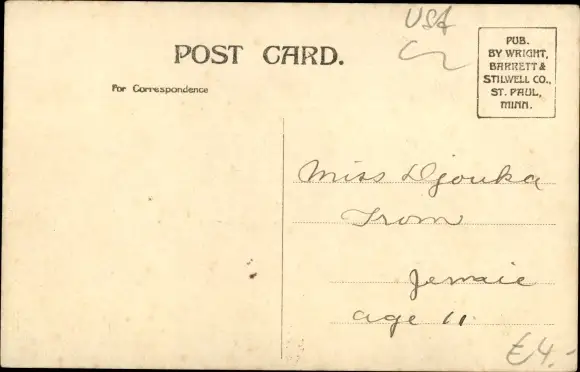 USA
POST CARD.
For Correspondence
PUB.
BY WRIGHT,
BARRETT &
STILWELL CO.,
ST. PAUL,
MINN.
Miss Djouka
From
Jennie
age 11
€4.-